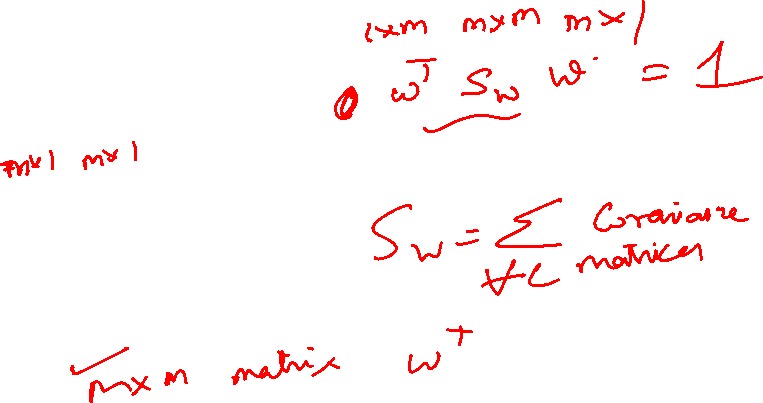 1×m m×m m×1
w^T S_w w = 1
m×1 m×1
S_w = ∑ Covariance
∀c matrices
m×m matrix w^T